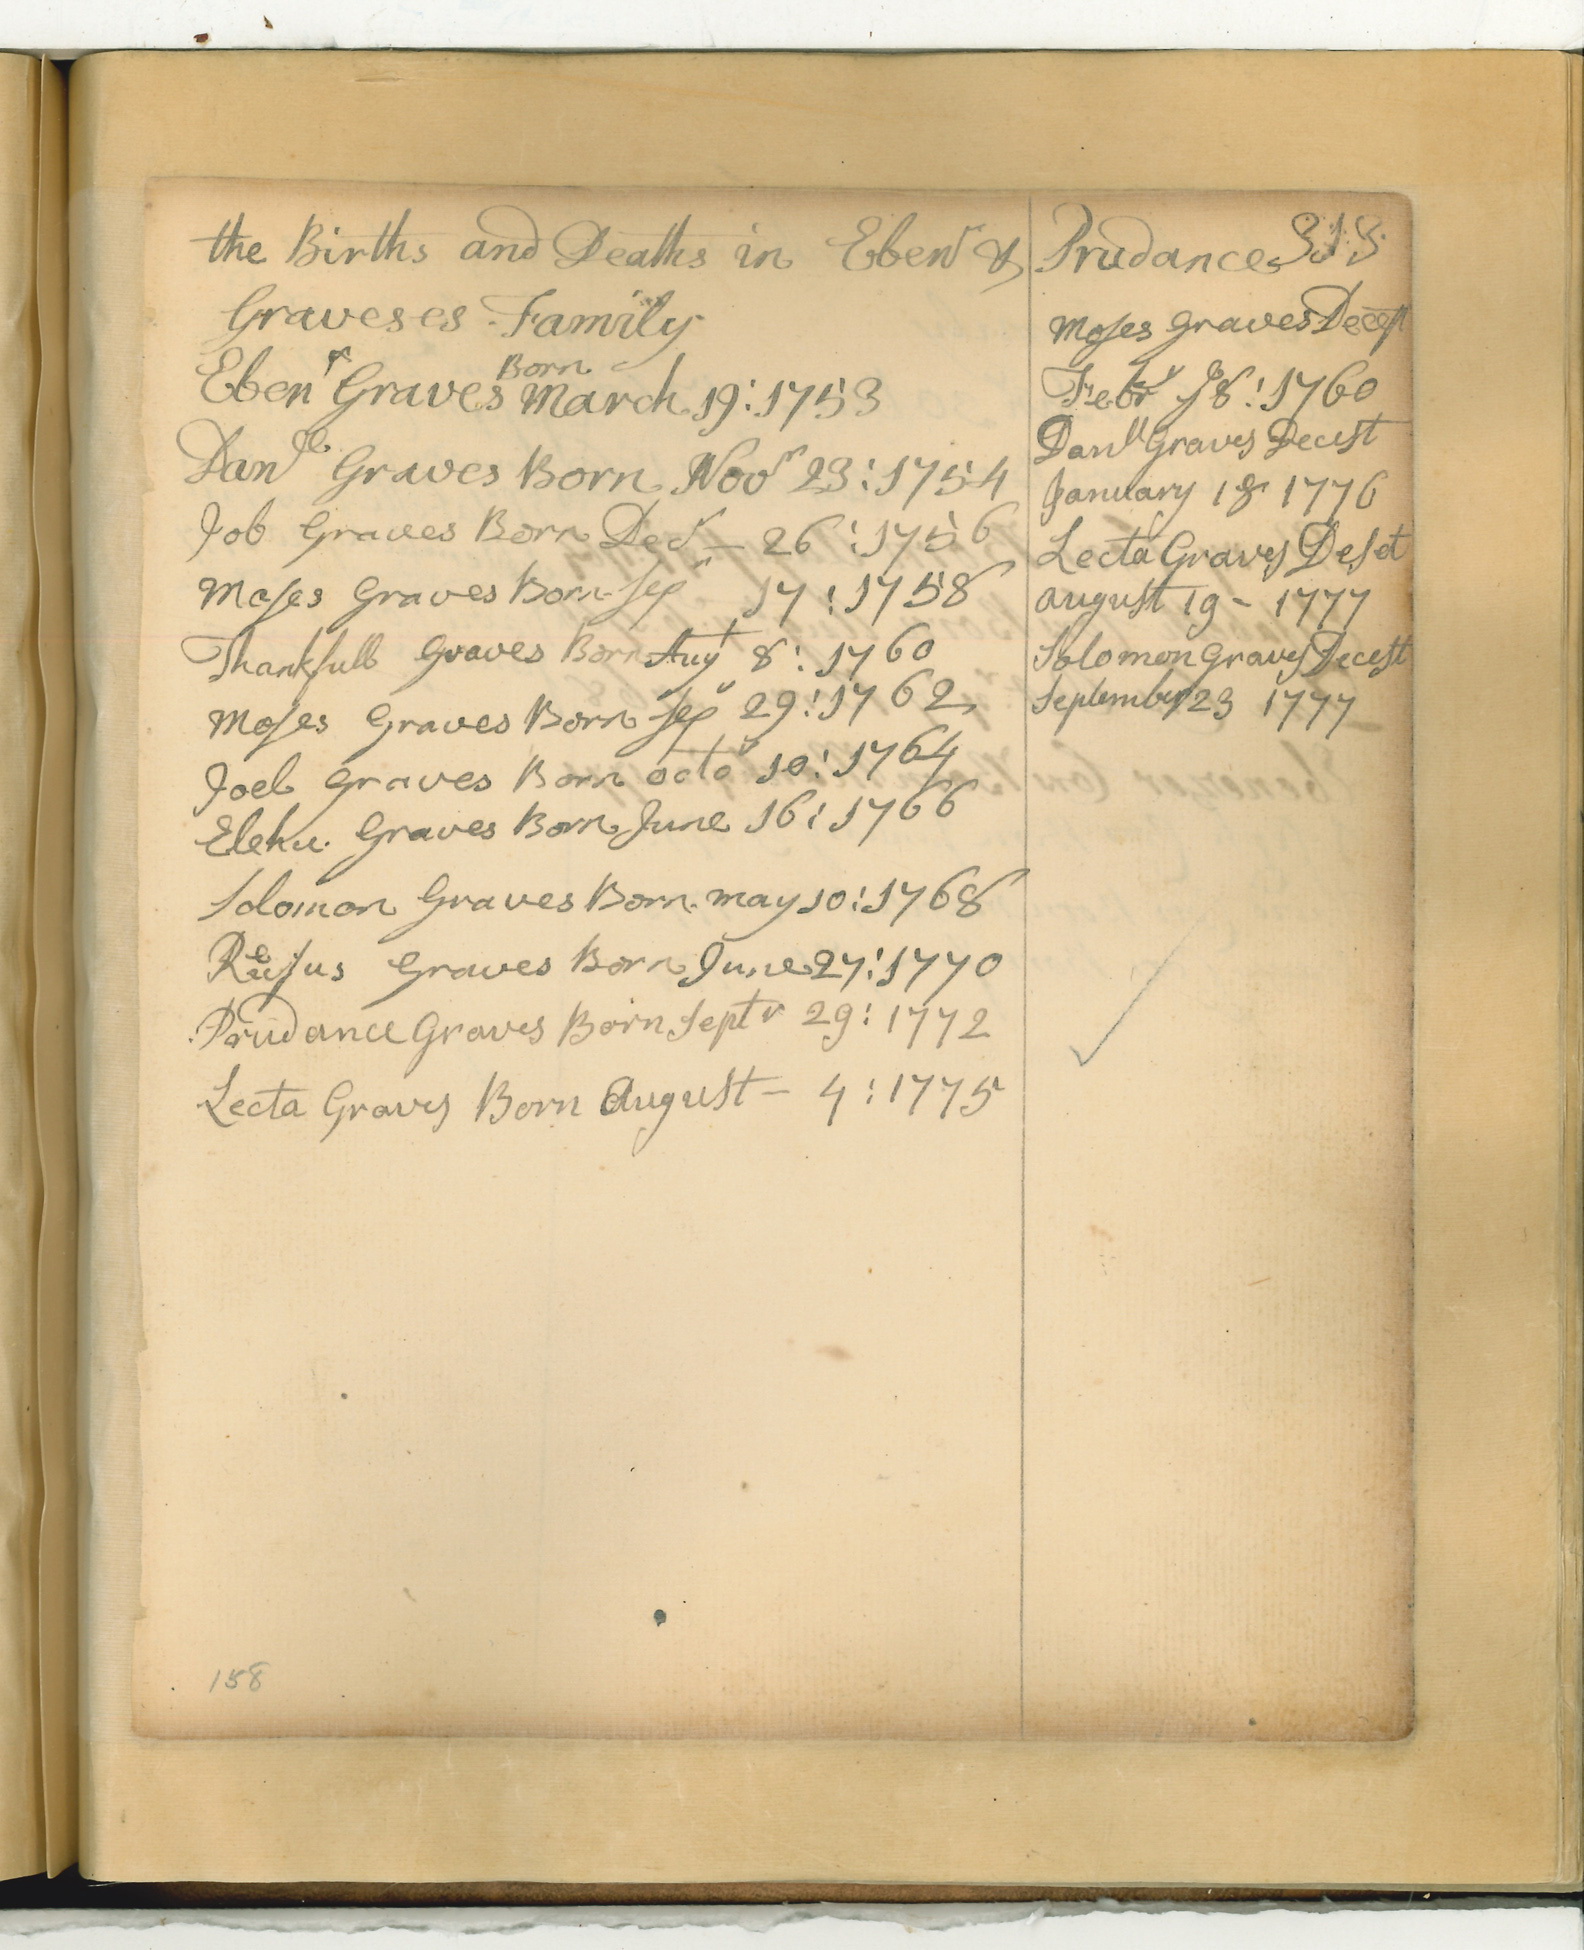 the Births and Deaths in Ebenr & Prudance 313
Graveses Family
Born
Ebenr Graves March 19:1753
Danll Graves Born Novr 23:1754
Job Graves Born Decr — 26:1756
Moses Graves Born Sepr 17:1758
Thankfull Graves Born Augt 8:1760
Moses Graves Born Sepr 29:1762
Joel Graves Born octor 10:1764
Elehu Graves Born June 16:1766
Solomon Graves Born may 10:1768
Rufus Graves Born June 27:1770
Prudance Graves Born Septr 29:1772
Lecta Graves Born August — 4:1775
Moses Graves Decest
Febry ye 8:1760
Danll Graves Decest
January 18 1776
Lecta Graves Deset
august 19 - 1777
Solomon Graves Decest
September 23 1777
158